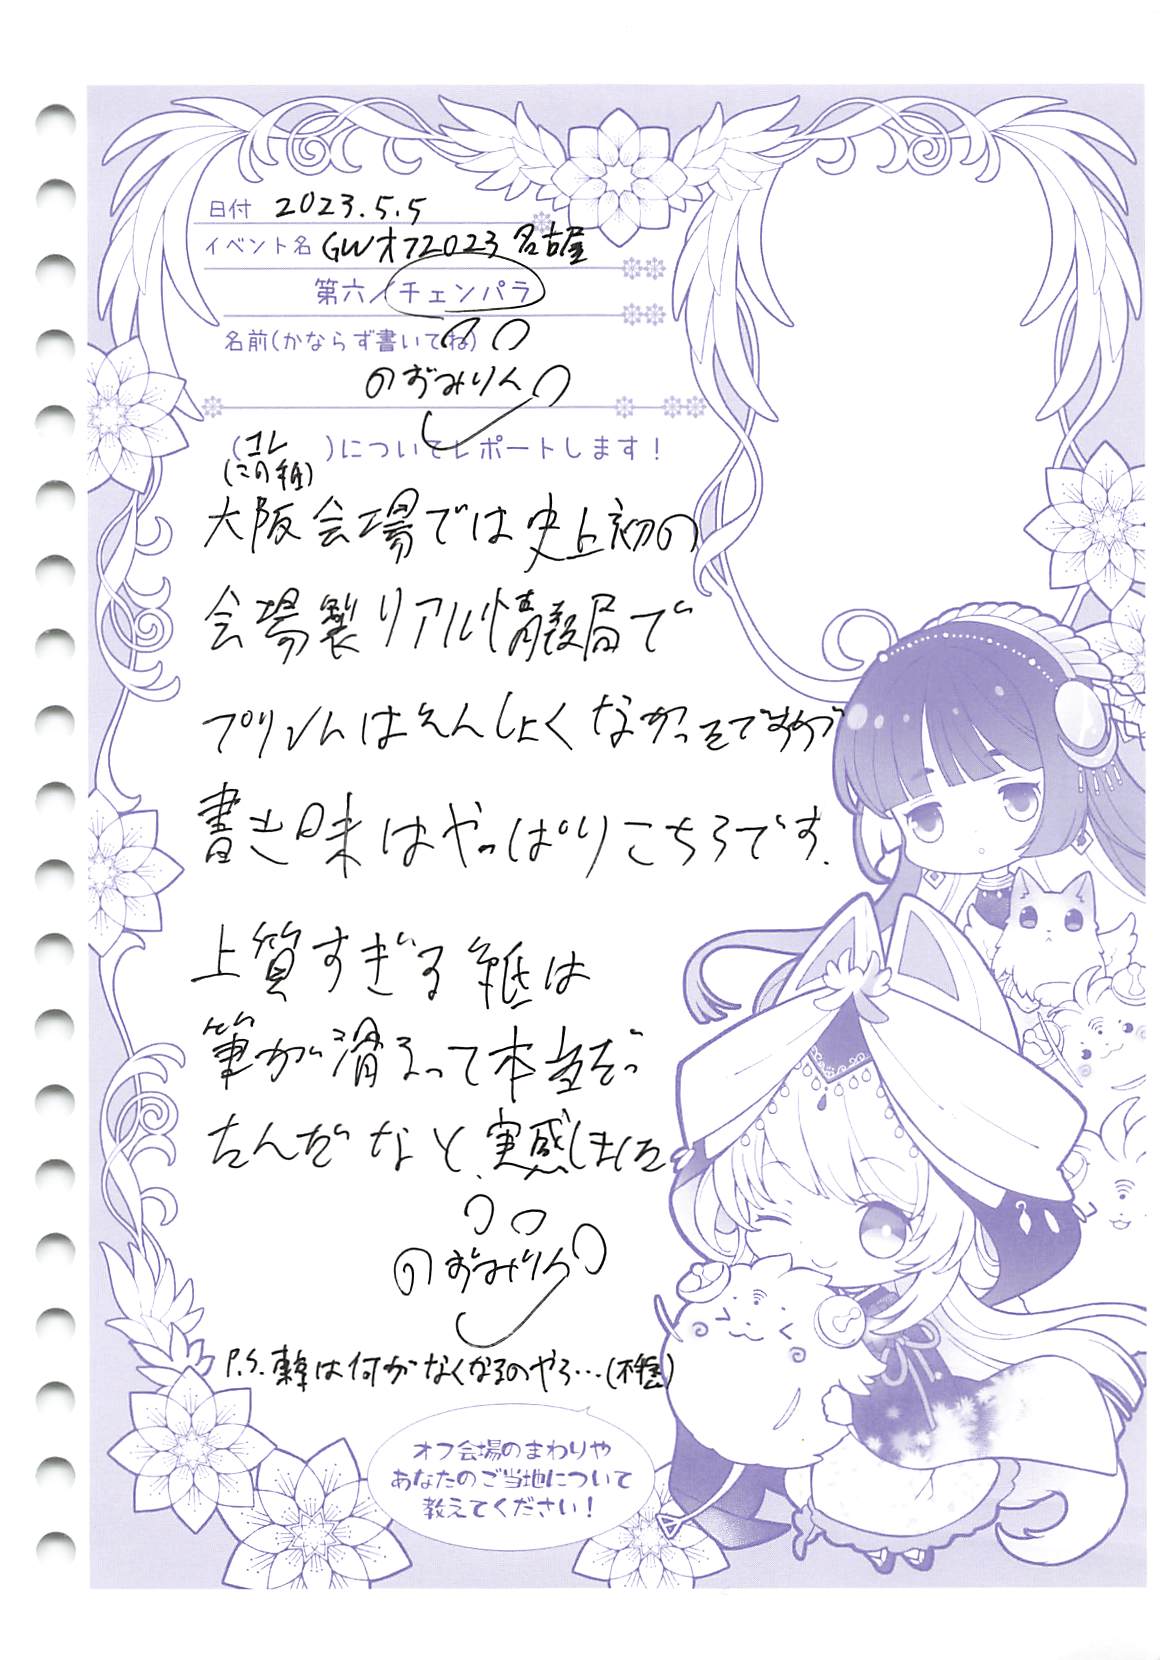 日付 2023.5.5
イベント名 GWオフ2023 名古屋
第六/チェンパラ
名前(かならず書いてね)
のおみりん
(コレ)についてレポートします!
(この紙)
大阪会場では史上初の
会場製リアル情報局で
プリントはえんしょくなかったですが
書き味はやっぱりこちらです.
上質すぎる紙は
筆が滑るって本当だっ
たんだなと、実感しました
のおみりん
P.S. 東は何がなくなるのやろ…(不穏)
オフ会場のまわりや
あなたのご当地について
教えてください!